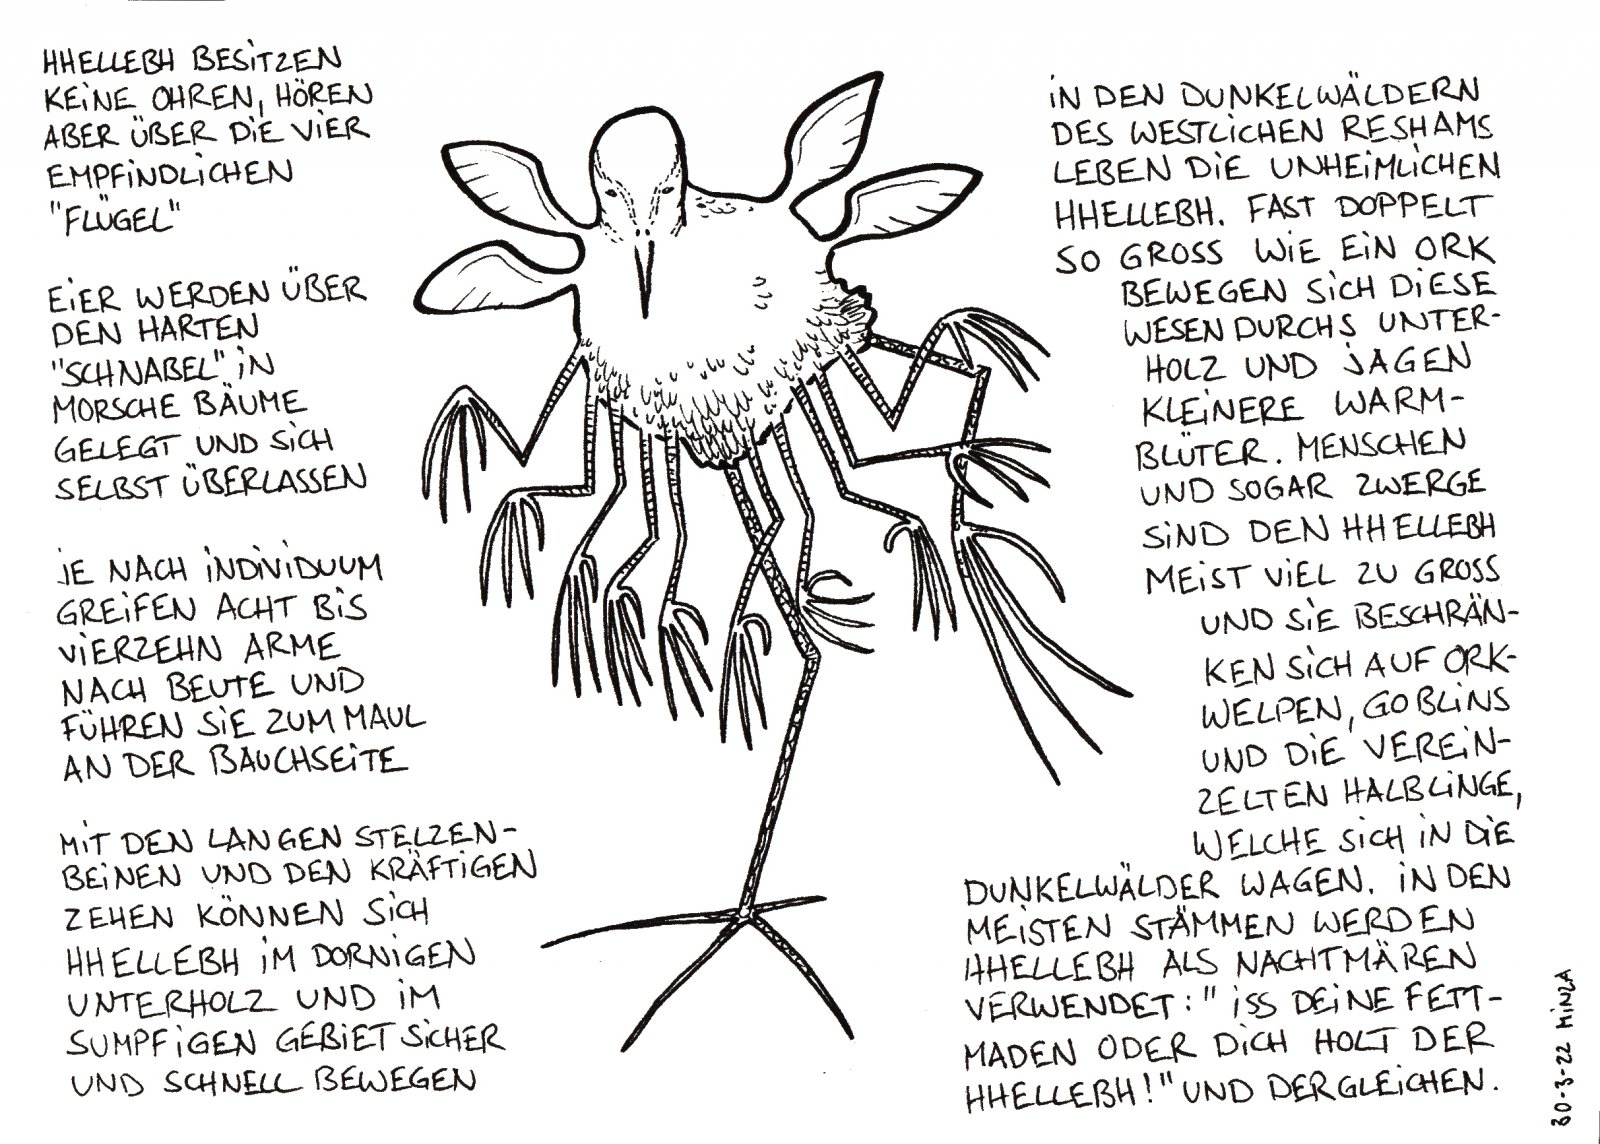 HHELLEBH BESITZEN
KEINE OHREN, HÖREN
ABER ÜBER DIE VIER
EMPFINDLICHEN
"FLÜGEL"
EIER WERDEN ÜBER
DEN HARTEN
"SCHNABEL" IN
MORSCHE BÄUME
GELEGT UND SICH
SELBST ÜBERLASSEN
JE NACH INDIVIDUUM
GREIFEN ACHT BIS
VIERZEHN ARME
NACH BEUTE UND
FÜHREN SIE ZUM MAUL
AN DER BAUCHSEITE
MIT DEN LANGEN STELZEN-
BEINEN UND DEN KRÄFTIGEN
ZEHEN KÖNNEN SICH
HHELLEBH IM DORNIGEN
UNTERHOLZ UND IM
SUMPFIGEN GEBIET SICHER
UND SCHNELL BEWEGEN
IN DEN DUNKELWÄLDERN
DES WESTLICHEN RESHAMS
LEBEN DIE UNHEIMLICHEN
HHELLEBH. FAST DOPPELT
SO GROSS WIE EIN ORK
BEWEGEN SICH DIESE
WESEN DURCHS UNTER-
HOLZ UND JAGEN
KLEINERE WARM-
BLÜTER. MENSCHEN
UND SOGAR ZWERGE
SIND DEN HHELLEBH
MEIST VIEL ZU GROSS
UND SIE BESCHRÄN-
KEN SICH AUF ORK-
WELPEN, GOBLINS
UND DIE VEREIN-
ZELTEN HALBLINGE,
WELCHE SICH IN DIE
DUNKELWÄLDER WAGEN. IN DEN
MEISTEN STÄMMEN WERDEN
HHELLEBH ALS NACHTMÄREN
VERWENDET: "ISS DEINE FETT-
MADEN ODER DICH HOLT DER
HHELLEBH!" UND DERGLEICHEN.
30-3-22 MINZA